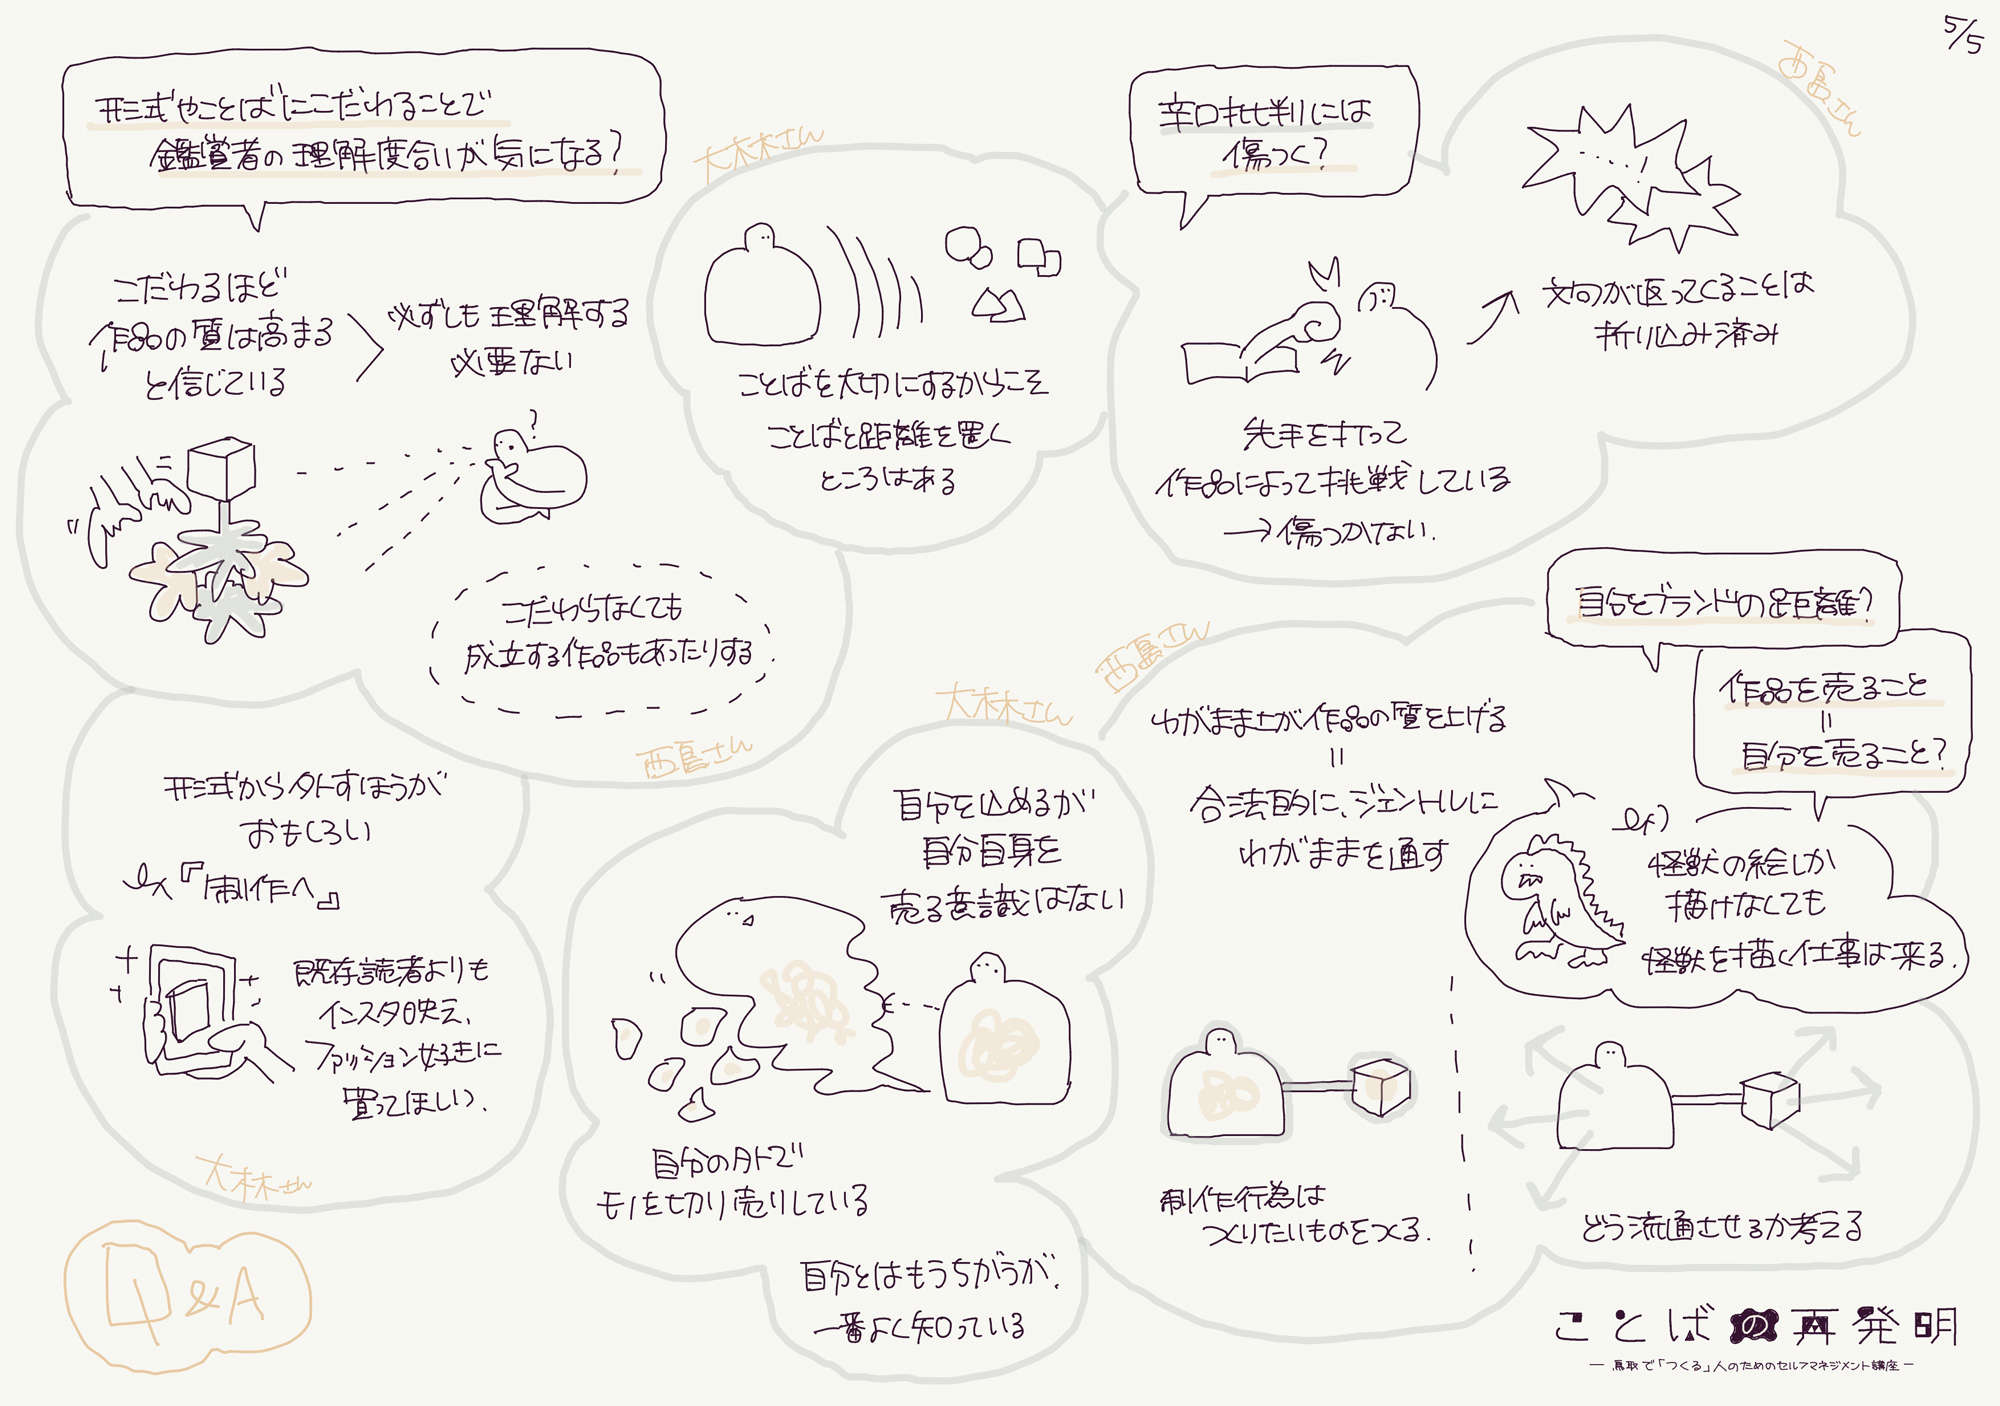 5/5
形式やことばにこだわることで
鑑賞者の理解度合いが気になる?
こだわるほど
作品の質は高まる
と信じている
必ずしも理解する
必要ない
?
こだわらなくても
成立する作品もあったりする.
西島さん
大林さん
ことばを大切にするからこそ
ことばと距離を置く
ところはある
辛口批判には
傷つく?
西島さん
先手を打って
作品によって挑戦している
→傷つかない.
文句が返ってくることは
折り込み済み
形式から外すほうが
おもしろい
ex『制作へ』
既存読者よりも
インスタ映え,
ファッション好きに
買ってほしい.
大林さん
自分とブランドの距離?
作品を売ること
=
自分を売ること?
大林さん
自分を込めるが
自分自身を
売る意識はない
自分の外で
モノを切り売りしている
自分とはもうちがうが,
一番よく知っている
西島さん
わがままが作品の質を上げる
=
合法的に、ジェントルに
わがままを通す
ex)
怪獣の絵しか
描けなくても
怪獣を描く仕事は来る.
制作行為は
つくりたいものをつくる.
どう流通させるか考える
Q&A
ことばの再発明
— 鳥取で「つくる」人のためのセルフマネジメント講座 —